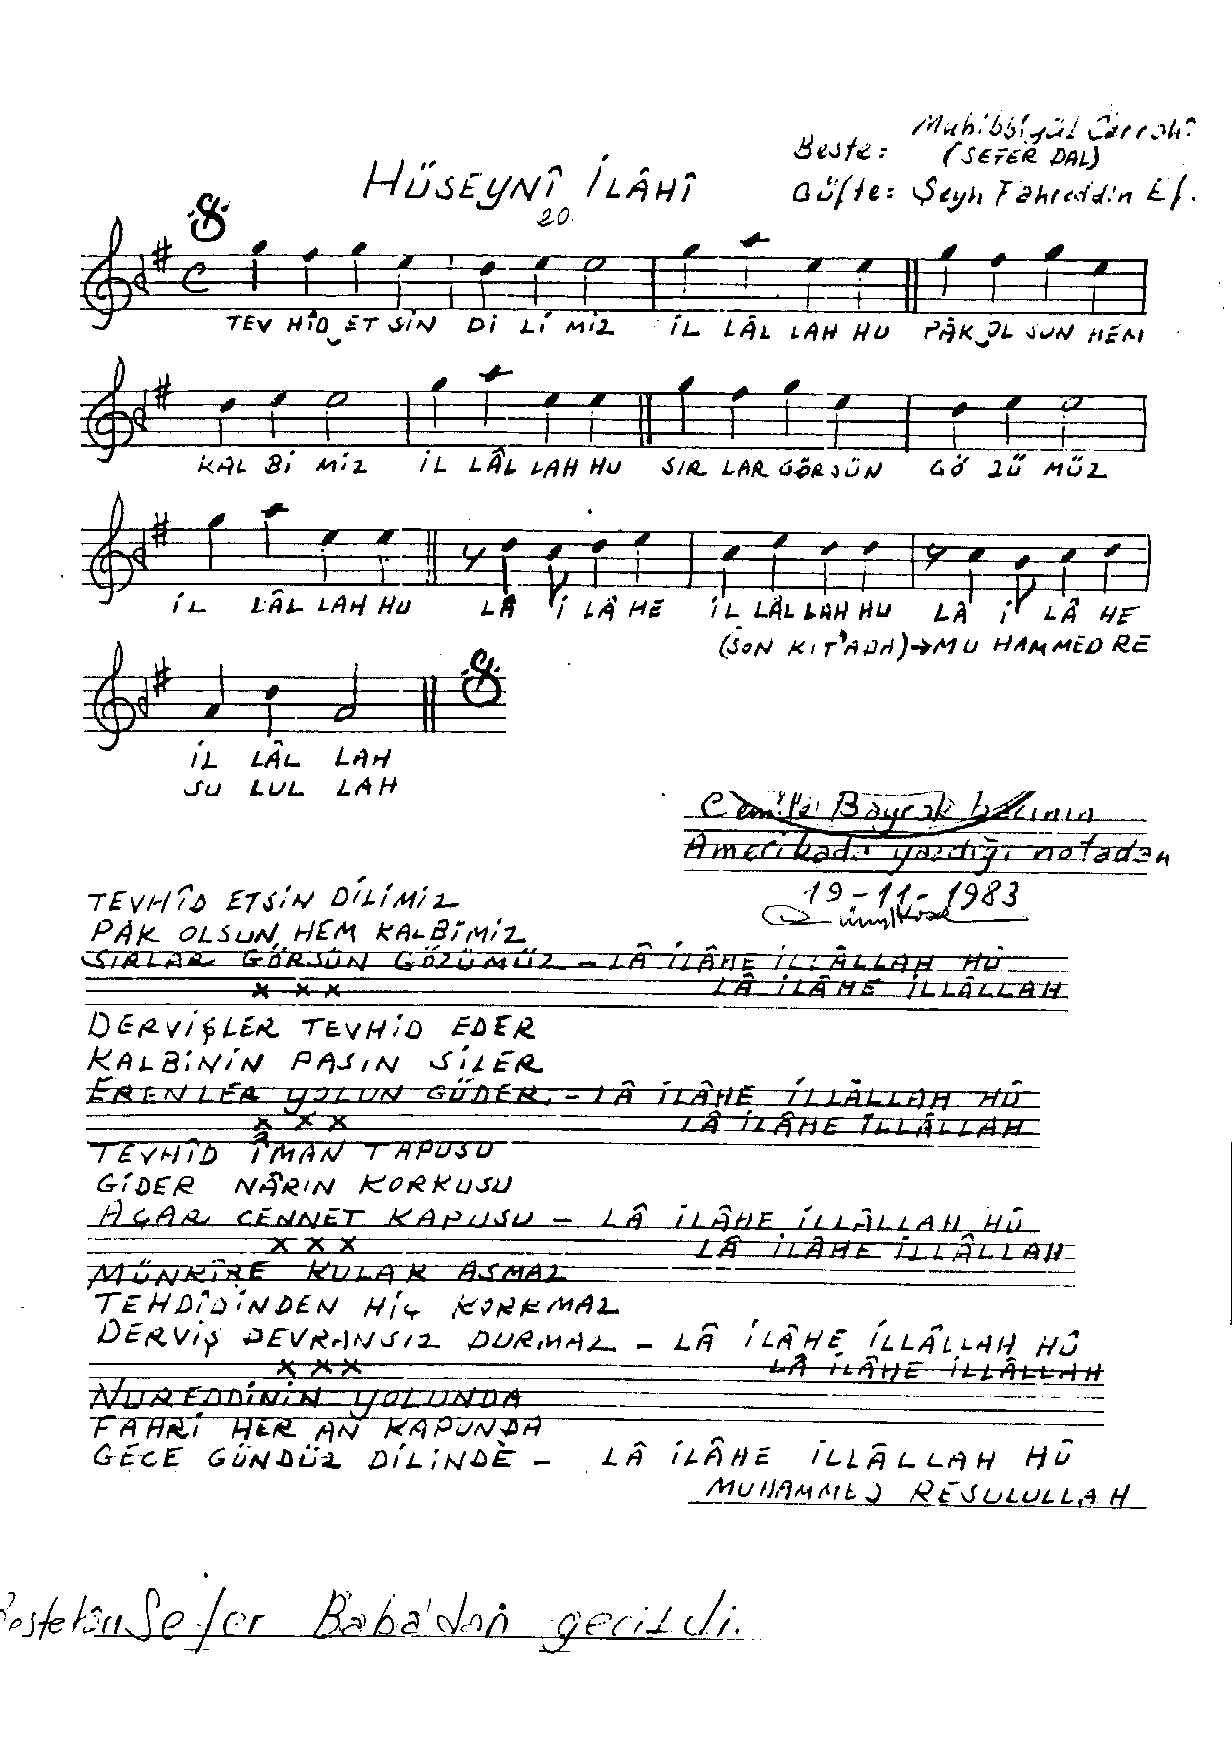 Muhibbîyül Cerrahî
Beste: (SEFER DAL)
HÜSEYNÎ İLÂHÎ
Güfte: Şeyh Fahreddin Ef.
20.
TEV HÎD ET SİN Dİ Lİ MİZ İL LÂL LAH HU PÂK OL SUN HEM
KAL Bİ MİZ İL LÂL LAH HU SIR LAR GÖR SÜN GÖ ZÜ MÜZ
İL LÂL LAH HU LÂ İ LÂ HE İL LÂL LAH HU LÂ İ LÂ HE
(SON KIT'ADA)→MU HAMMED RE
İL LÂL LAH
SU LUL LAH
Cemile Bayrak
Amerikada yazdığı notadan
19-11-1983
TEVHÎD ETSİN DİLİMİZ
PÂK OLSUN HEM KALBİMİZ
SIRLAR GÖRSÜN GÖZÜMÜZ - LÂ İLÂHE İLLÂLLAH HÛ
x x x LÂ İLÂHE İLLÂLLAH
DERVİŞLER TEVHİD EDER
KALBİNİN PASIN SİLER
ERENLER YOLUN GÜDER. - LÂ İLÂHE İLLÂLLAH HÛ
x x x LÂ İLÂHE İLLÂLLAH
TEVHÎD ÎMAN TAPUSU
GİDER NÂRIN KORKUSU
AÇAR CENNET KAPUSU - LÂ İLÂHE İLLÂLLAH HÛ
x x x LÂ İLÂHE İLLÂLLAH
MÜNKİRE KULAK ASMAZ
TEHDİDİNDEN HİÇ KORKMAZ
DERVİŞ DEVRANSIZ DURMAZ - LÂ İLÂHE İLLÂLLAH HÛ
x x x LÂ İLÂHE İLLÂLLAH
NUREDDİNİN YOLUNDA
FAHRİ HER AN KAPUNDA
GECE GÜNDÜZ DİLİNDE - LÂ İLÂHE İLLÂLLAH HÛ
MUHAMMED RESULULLAH
Bestekârı Sefer Baba'dan geçildi.